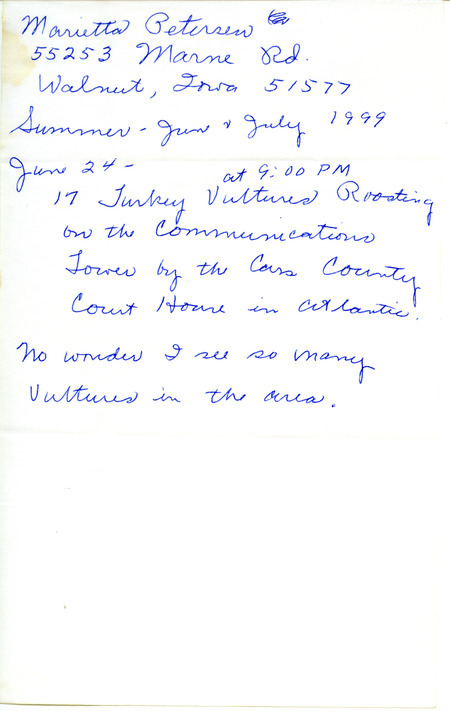 Marietta Petersen
55253 Marne Rd.
Walnut, Iowa 51577
Summer - June & July 1999
June 24 -
at 9:00 PM
17 Turkey Vultures Roosting
on the Communications
Tower by the Cass County
Court House in Atlantic.
No wonder I see so many
Vultures in the area.